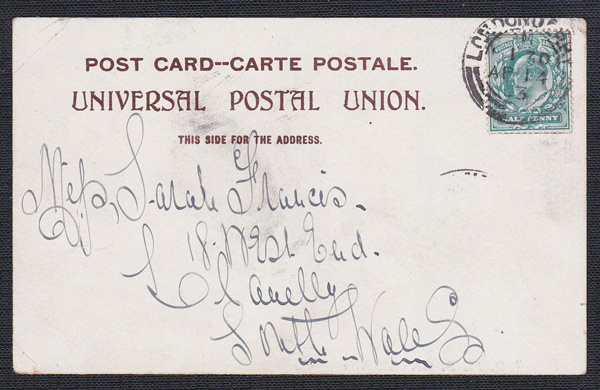 POST CARD--CARTE POSTALE.
UNIVERSAL POSTAL UNION.
THIS SIDE FOR THE ADDRESS.
LONDON
AP 14
3
HALFPENNY
Miss Sarah Francis.
18. West End.
Llanelly
South Wales